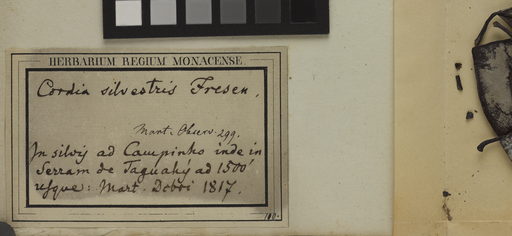 HERBARIUM REGIUM MONACENSE.
Cordia silvestris Fresen.
Mart. Observ. 299.
In silvis ad Campinho inde in
Serram de Taguahy ad 1500'
usque: Mart. Dcbri 1817.